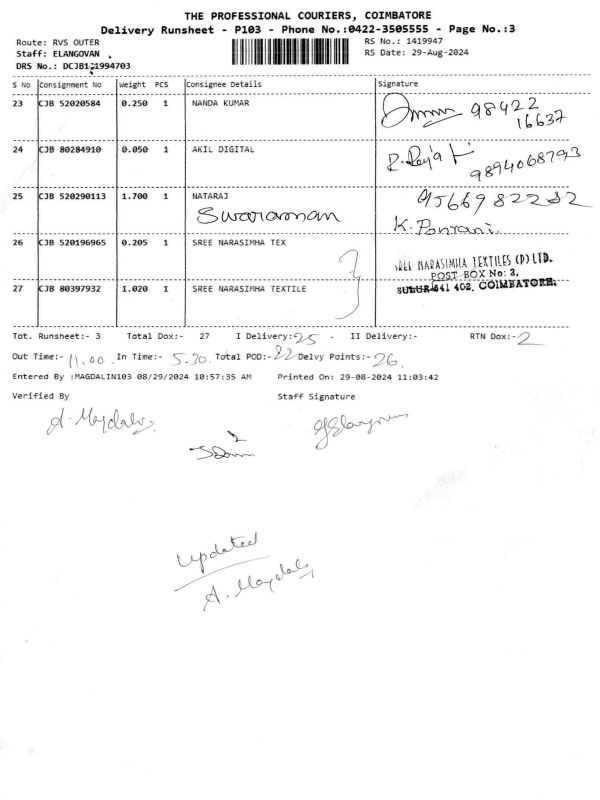 THE PROFESSIONAL COURIERS, COIMBATORE
Delivery Runsheet - P103 - Phone No.:0422-3505555 - Page No.:3
Route: RVS OUTER
Staff: ELANGOVAN
DRS No.: DCJB121994703
RS No.: 1419947
RS Date: 29-Aug-2024
S No Consignment No Weight PCS Consignee Details Signature
23 CJB 52020584 0.250 1 NANDA KUMAR 98422
16637
24 CJB 80284910 0.050 1 AKIL DIGITAL R. Raja
9894068793
25 CJB 520290113 1.700 1 NATARAJ 9566982252
Swaraman K. Ponrani
26 CJB 520196965 0.205 1 SREE NARASIMHA TEX
SREE NARASIMHA TEXTILES (P) LTD.
POST BOX No: 2,
SULUR-641 402. COIMBATORE.
27 CJB 80397932 1.020 1 SREE NARASIMHA TEXTILE
Tot. Runsheet:- 3 Total Dox:- 27 I Delivery:- 25 - II Delivery:- RTN Dox:- 2
Out Time:- 11.00. In Time:- 5.30. Total POD:- 22 Delvy Points:- 26.
Entered By :MAGDALIN103 08/29/2024 10:57:35 AM Printed On: 29-08-2024 11:03:42
Verified By Staff Signature
A. Magdalin
updated
A. Magdalin